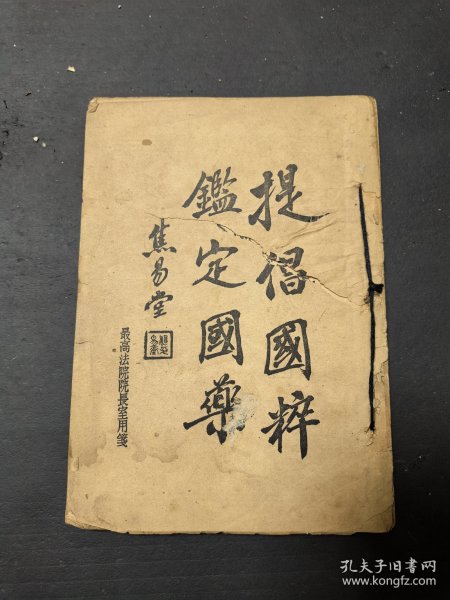 提倡國粹
鑑定國藥
焦易堂
最高法院院長室用箋
孔夫子旧书网
www.kongfz.com